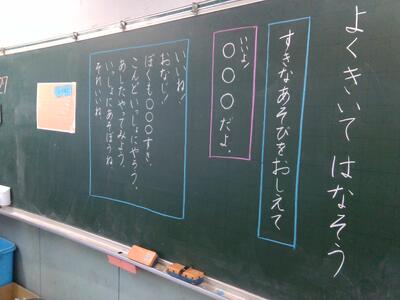 よくきいて はなそう
すきなあそびをおしえて
いいよ!
〇〇〇だよ。
いいね!
おなじ!
ぼくも〇〇〇すき。
こんどいっしょにやろう。
あしたやってみよう。
いっしょにあそぼうね。
それいいね。
27